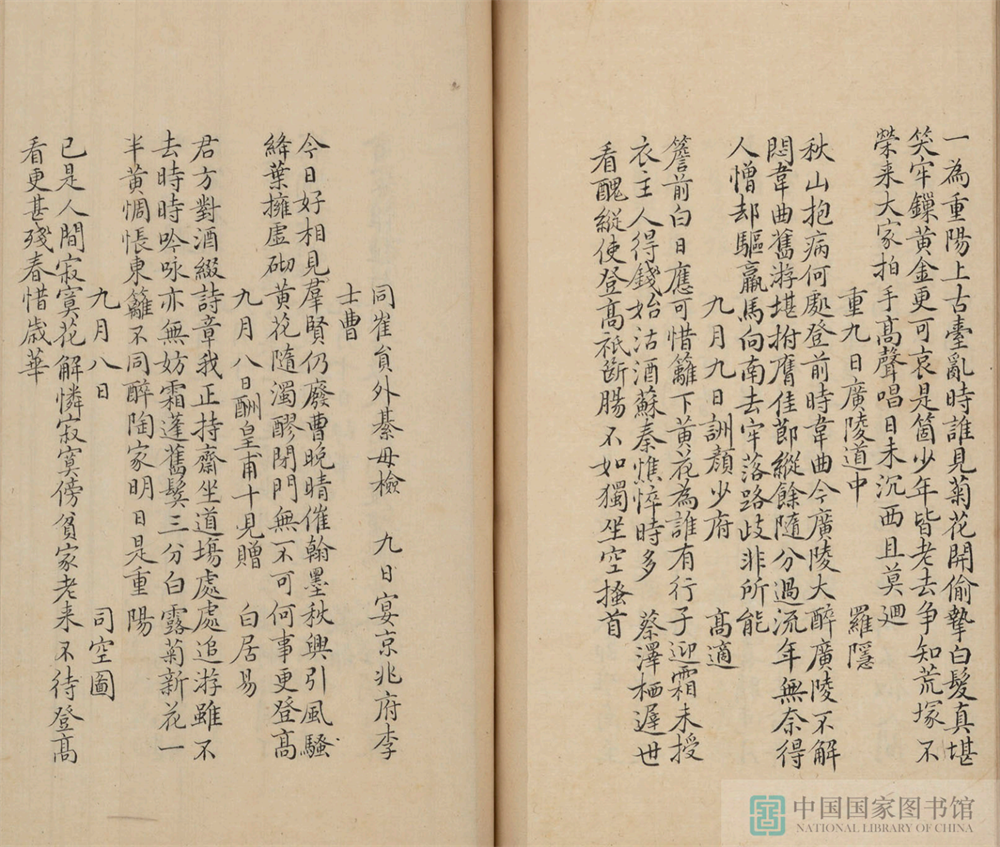 一為重陽上古臺亂時誰見菊花開偷摯白髮真堪
笑牢鏁黄金更可哀是箇少年皆老去争知荒塚不
榮来大家拍手高聲唱日未沉西且莫廻
重九日廣陵道中　羅隱
秋山抱病何處登前時韋曲今廣陵大醉廣陵不解
悶韋曲舊游堪拊膺佳節縱餘隨分過流年無奈得
人憎却驅羸馬向南去牢落路歧非所能
九月九日詶顏少府　高適
簷前白日應可惜籬下黄花為誰有行子迎霜未授
衣主人得錢始沽酒蘇秦憔悴時多　蔡澤栖遲世
看醜縱使登高祇斷腸不如獨坐空搔首
同崔員外綦毋檢　九日宴京兆府李
士曹
今日好相見羣賢仍廢曹晚晴催翰墨秋興引風騷
絳葉擁虛砌黄花隨濁醪閉門無不可何事更登高
九月八日酬皇甫十見贈　白居易
君方對酒綴詩章我正持齋坐道場處處追游雖不
去時時吟咏亦無妨霜蓬舊鬂三分白露菊新花一
半黄惆悵東籬不同醉陶家明日是重陽
九月八日　司空圖
已是人間寂寞花解憐寂寞傍貧家老来不待登高
看更甚殘春惜歲華
中国国家图书馆
NATIONAL LIBRARY OF CHINA